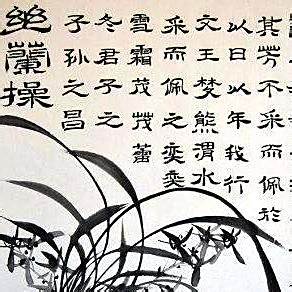 其芳不采而佩於
以日以年我行
文王梦熊渭水
采而佩之奕奕
雪霜茂茂蕾
冬君子之
子孙之昌
幽蘭操